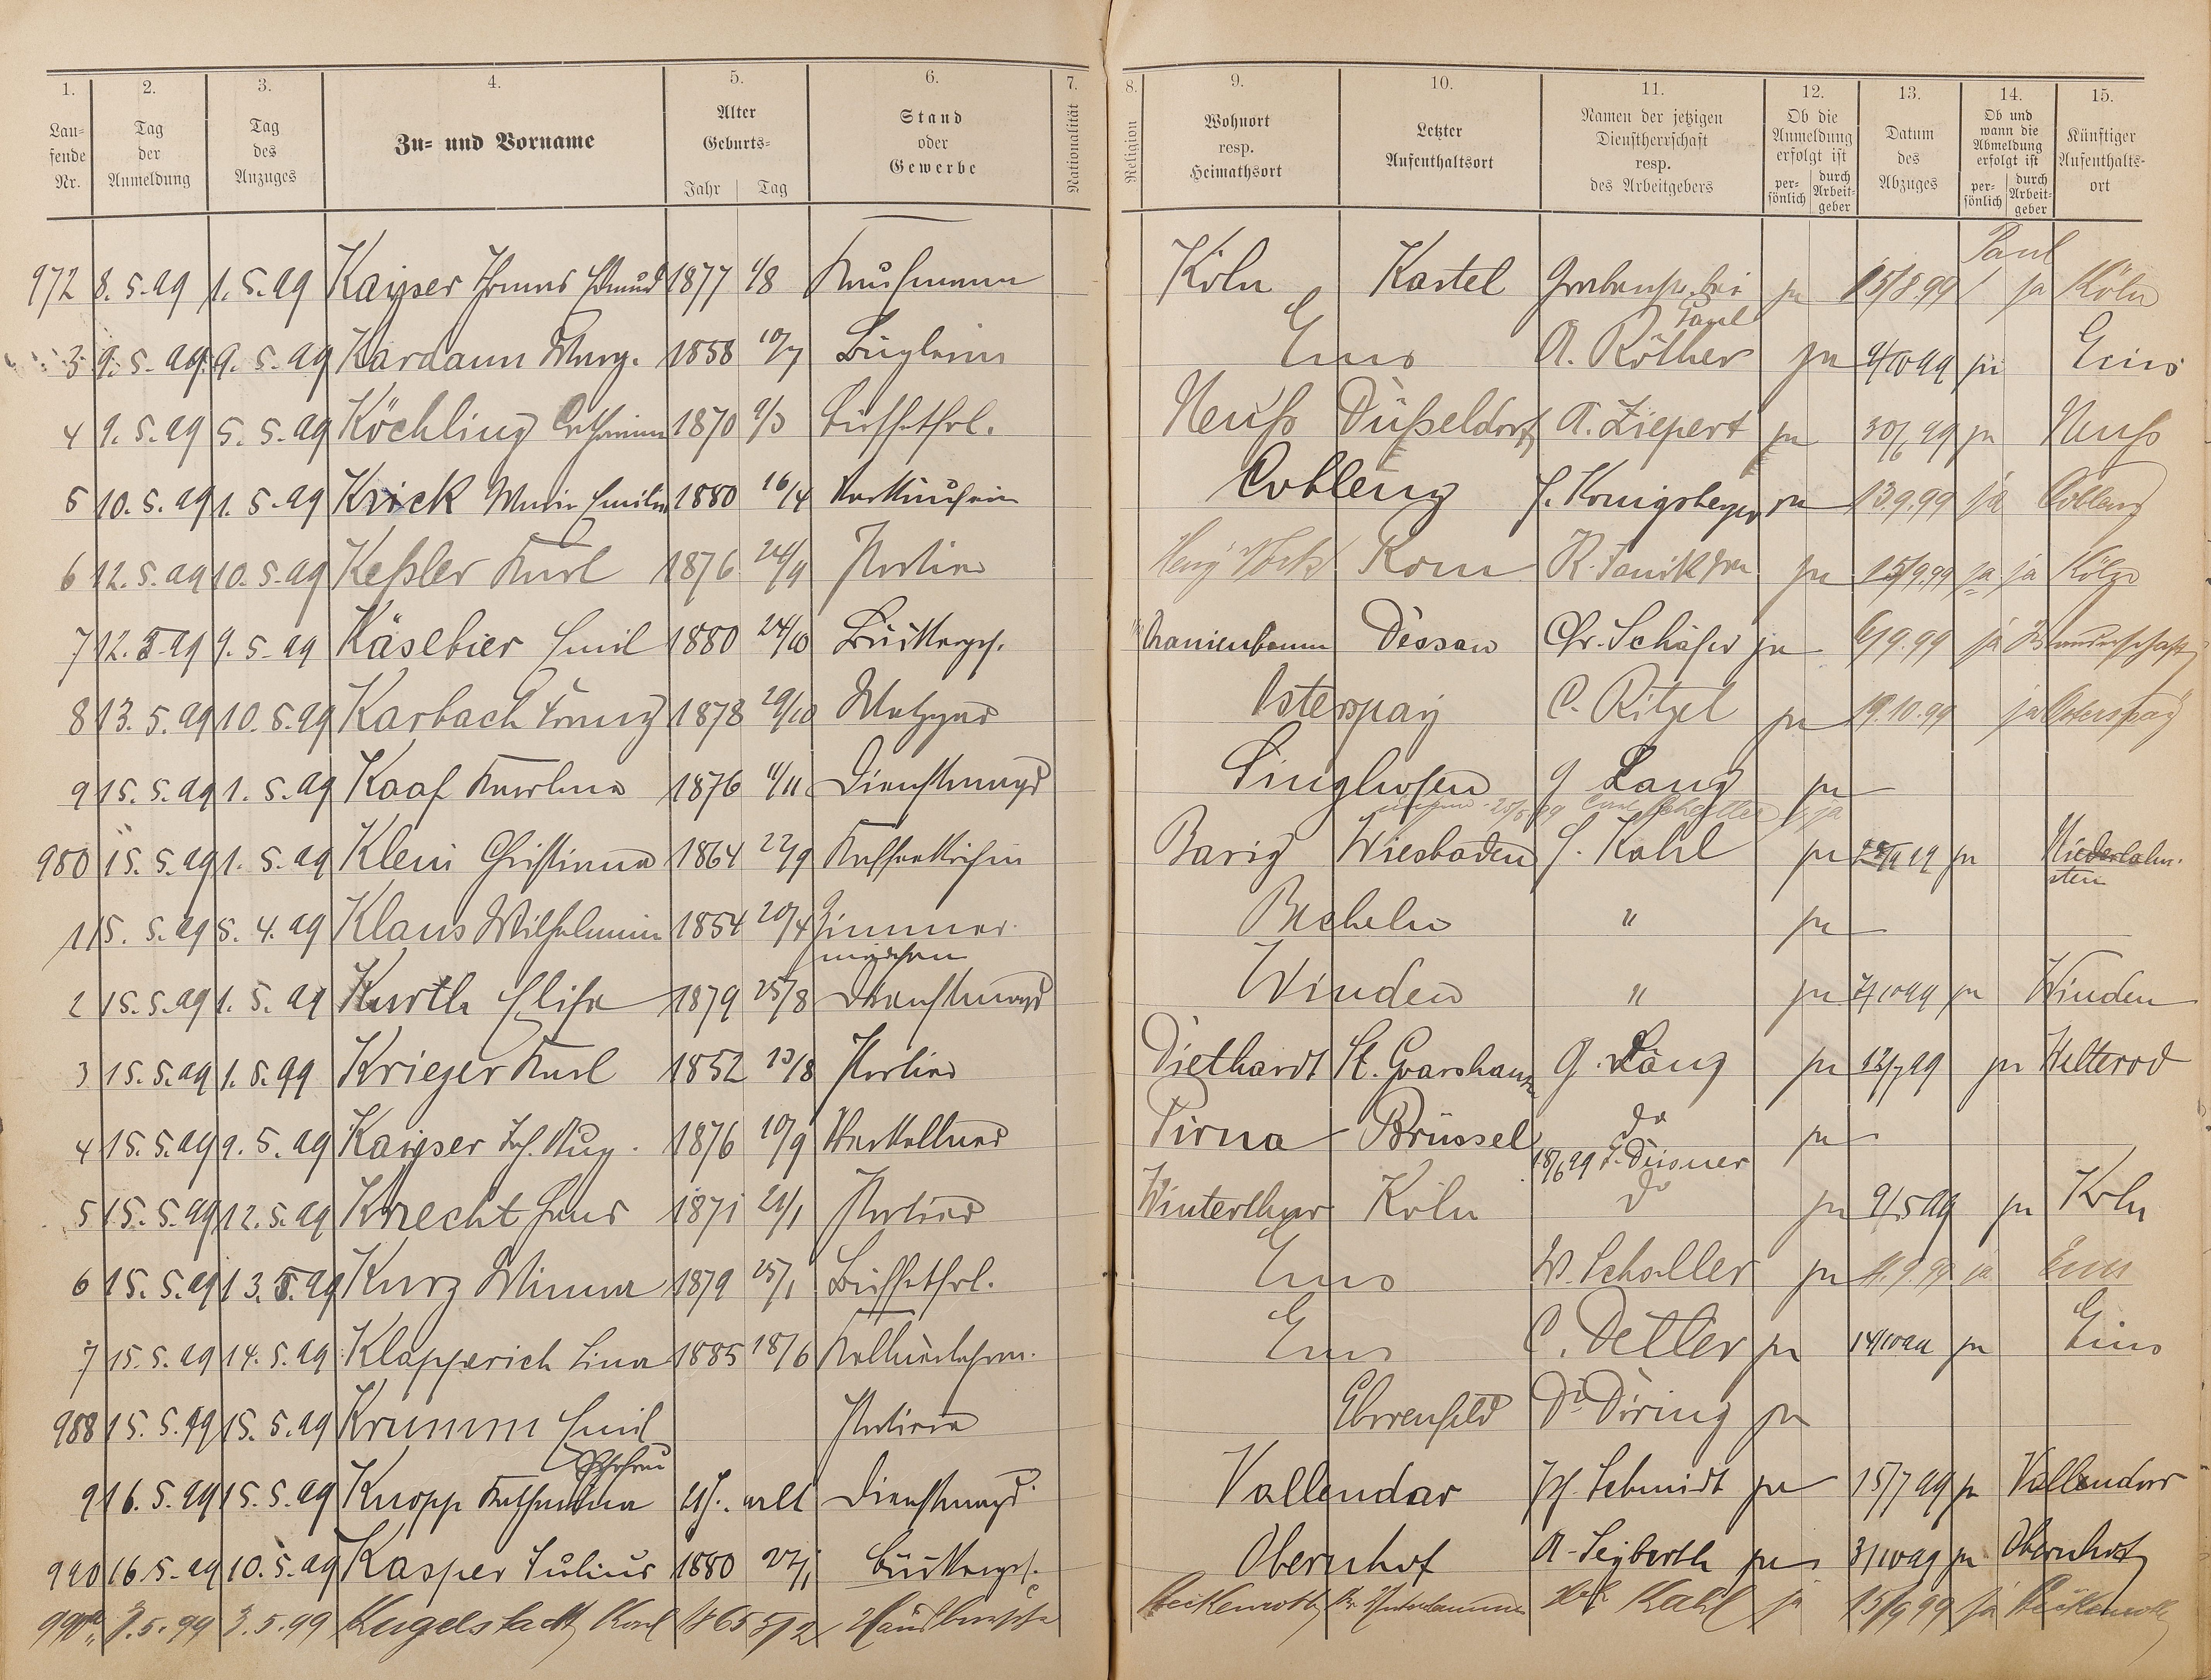 1. 2. 3. 4. 5. 6. 7. 8. 9. 10. 11. 12. 13. 14. 15.
Lau-
fende
Nr.
Tag
der
Anmeldung
Tag
des
Anzuges
Zu- und Vorname
Alter
Geburts-
Jahr Tag
Stand
oder
Gewerbe
Nationalität
Religion
Wohnort
resp.
Heimathsort
Letzter
Aufenthaltsort
Namen der jetzigen
Dienstherrschaft
resp.
des Arbeitgebers
Ob die
Anmeldung
erfolgt ist
per-
sönlich
durch
Arbeit-
geber
Datum
des
Abzuges
Ob und
wann die
Abmeldung
erfolgt ist
per-
sönlich
durch
Arbeit-
geber
Künftiger
Aufenthalts-
ort
972 8. 5. 99 1. 5. 99 Kayser Thomas Edmund 1877 1/8 Kaufmann Köln Kastel bei ja 15/8.99 ja Köln
3 9. 5. 99 9. 5. 99 Kardaun Marg. 1858 10/7 Büglerin Ems A. Röther ja 9/10 99 ja Ems
4 9. 5. 99 5. 5. 99 Köchling Catharina 1870 9/3 Büffetfrl. Neuß Düßeldorf A. Ziepert ja 30/6 99 ja Neuß
5 10. 5. 99 1. 5. 99 Krick Maria Emilie 1880 16/4 Verkäuferin Coblenz J. Königsberger ja 13.9.99 ja Coblenz
6 12. 5. 99 10. 5. 99 Keßler Karl 1876 24/9 Portier Rom ja 15/9.99 ja ja Köln
7 12. 5. 99 9. 5. 99 Käsebier Emil 1880 24/10 Bäckergeh. Oranienbaum Dessau Chr. Schäfer ja 6/9.99 ja Wanderschaft
8 13. 5. 99 10. 5. 99 Karbach Franz 1878 29/10 Metzger Osterspay C. Ritzel ja 19.10.99 ja Osterspay
9 15. 5. 99 1. 5. 99 Kaaf Karoline 1876 11/11 Dienstmagd Singhofen G Lang ja
980 15. 5. 99 1. 5. 99 Klein Christiana 1864 22/9 Kaffeeköchin Barig Wiesbaden J. Kahl ja ja Niederlahn-
stein
1 15. 5. 99 5. 4. 99 Klaus Wilhelmine 1854 20/4 Zimmer-
mädchen Becheln " ja
2 15. 5. 99 1. 5. 99 Kurth Elise 1879 25/8 Dienstmagd Winden " ja 7/10 99 ja Winden
3 15. 5. 99 1. 5. 99 Krieger Karl 1852 13/8 Portier Diethardt St. Goarshausen G. Lang ja 12/7 99 ja Welterod
4 15. 5. 99 9. 5. 99 Kayser Joh. Aug. 1876 10/9 Oberkellner Pirna Brüssel do ja
18/6 99 F. Deisner
5 15. 5. 99 12. 5. 99 Knecht Hans 1871 21/1 Portier Winterthur Köln do ja 9/5 99 ja Köln
6 15. 5. 99 13. 5. 99 Kurz Minna 1879 25/1 Büffetfrl. Ems W. Schaller ja 11.9.99 ja Ems
7 15. 5. 99 14. 5. 99 Klapperich Lina 1885 18/6 Ems C. Detler ja 14/10 99 ja Ems
988 15. 5. 99 15. 5. 99 Krumm Emil Portier Ehrenfeld Dr Döring ja
Ehefrau
9 16. 5. 99 15. 5. 99 Knopp Katharina 21 J. alt Dienstmagd Vallendar Jos. Schmidt ja 15/7 99 ja Vallendar
990 16. 5. 99 10. 5. 99 Kasper Julius 1880 27/1 Bäckergeh. Obernhof A. Seyberth ja 3/10 99 ja Obernhof
990a 3. 5. 99 3. 5. 99 Kugelstadt Karl 1865 5/12 Hausbursche Kahl ja 15/9 99 ja